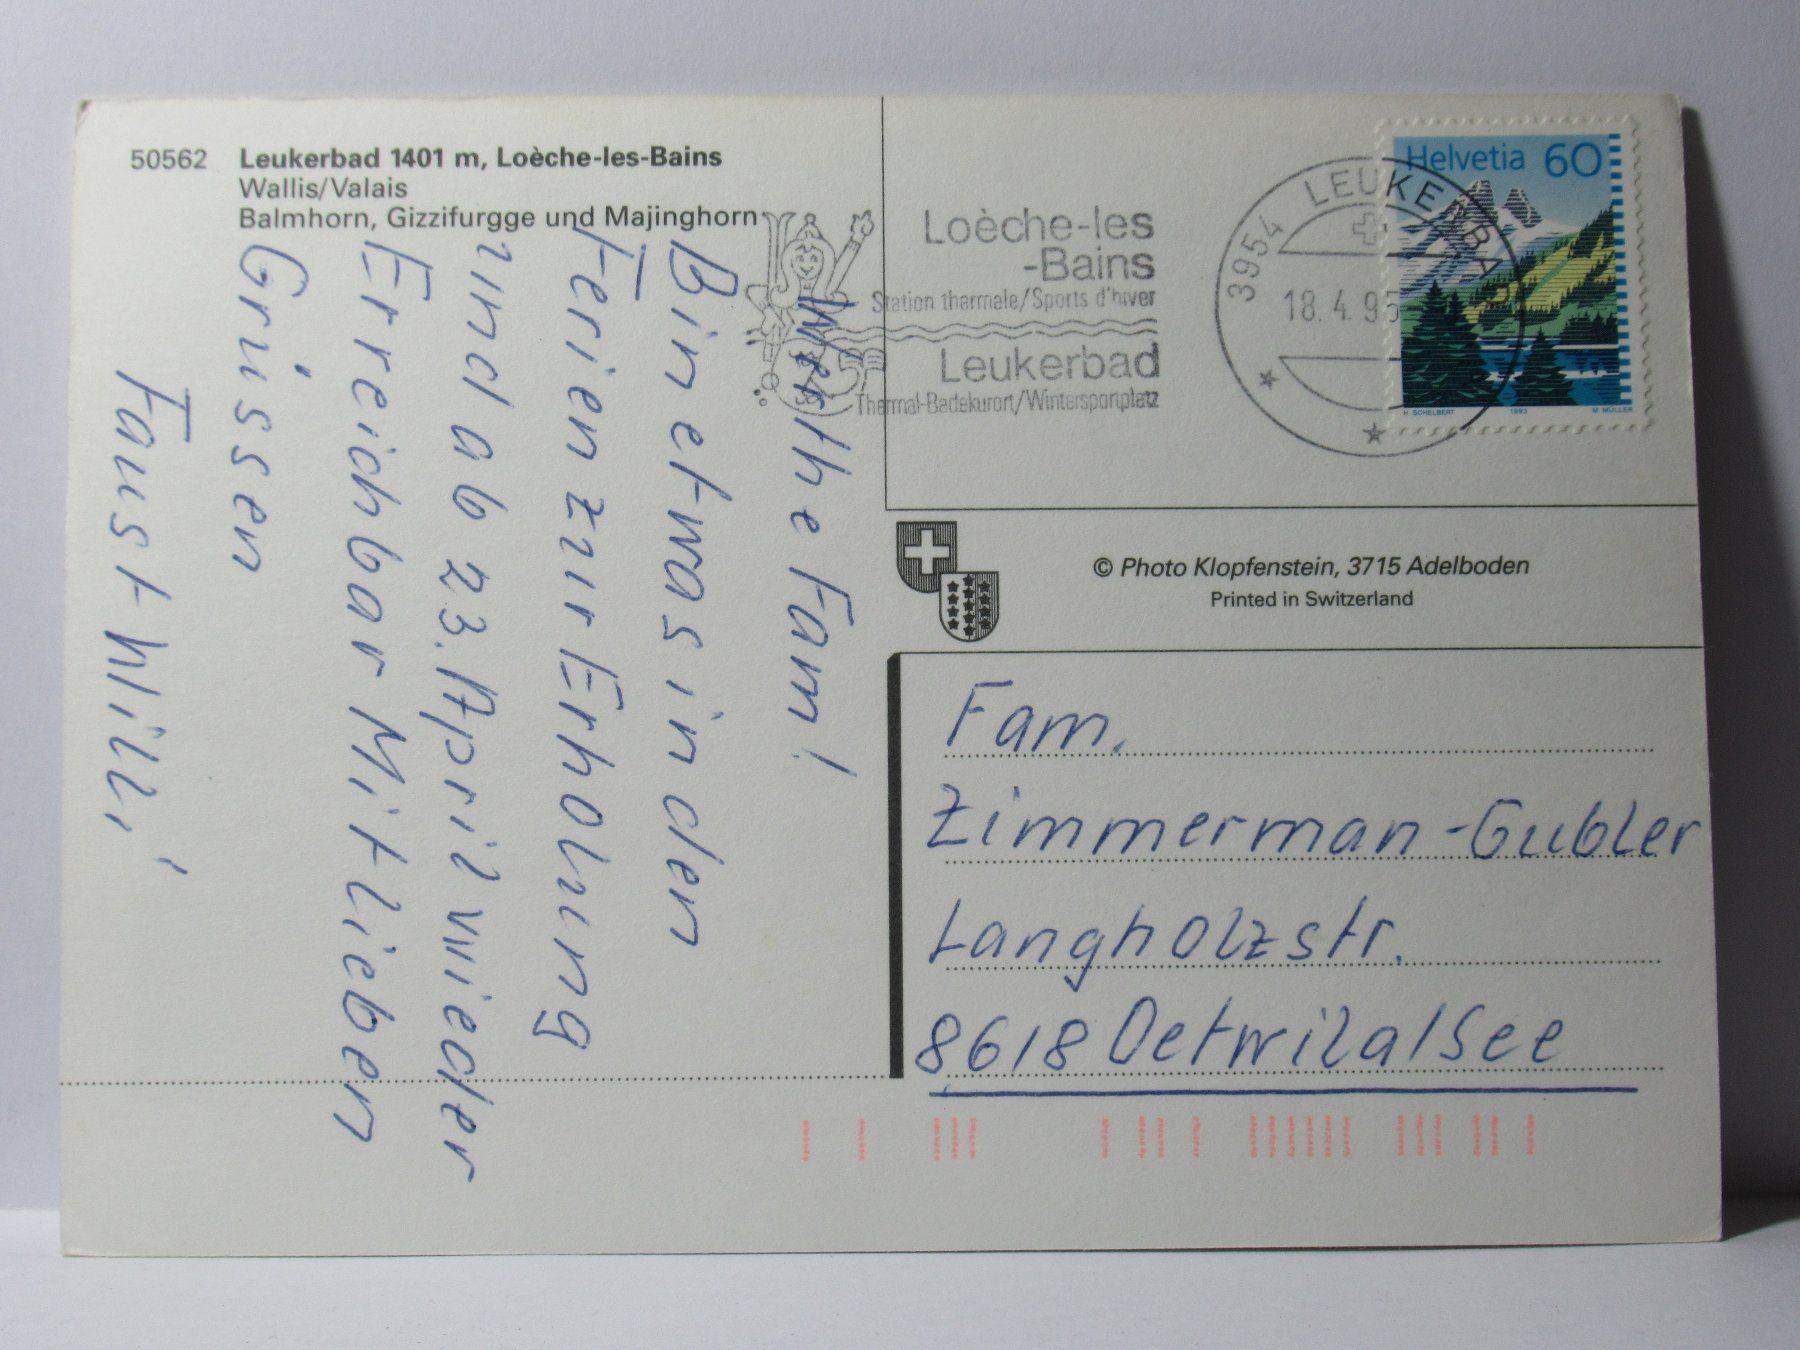 50562 Leukerbad 1401 m, Loèche-les-Bains
Wallis/Valais
Balmhorn, Gizzifurgge und Majinghorn
Werthe Fam!
Bin etwas in den
Ferien zur Erholung
und ab 23. April wieder
Erreichbar Mit lieben
Grüssen
Faust Willi
Loèche-les
-Bains
Station thermale/Sports d'hiver
Leukerbad
Thermal-Badekurort/Wintersportplatz
3954 LEUKERBAD
18.4.95
Helvetia 60
H. SCHELBERT 1993 M. MÜLLER
© Photo Klopfenstein, 3715 Adelboden
Printed in Switzerland
Fam.
Zimmerman-Gubler
Langholzstr.
8618 Oetwil a/See